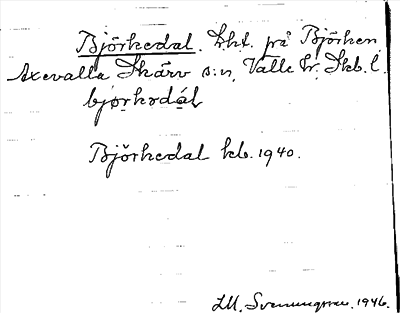 Björkedal. Lht. på Björken
Axevalla Skärv s:n, Valle hr. Skb. l.
bjọrkɘdál
Björkedal kb. 1940.
LM. Svenungsson. 1946.